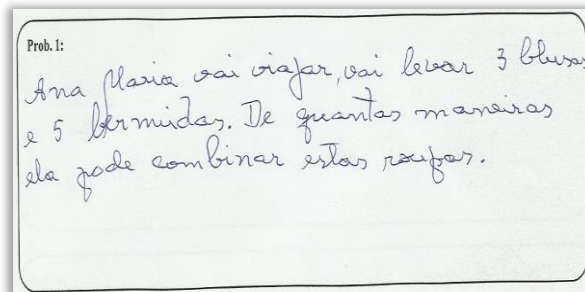 Prob. 1:
Ana Maria vai viajar, vai levar 3 blusas
e 5 bermudas. De quantas maneiras
ela pode combinar estas roupas.